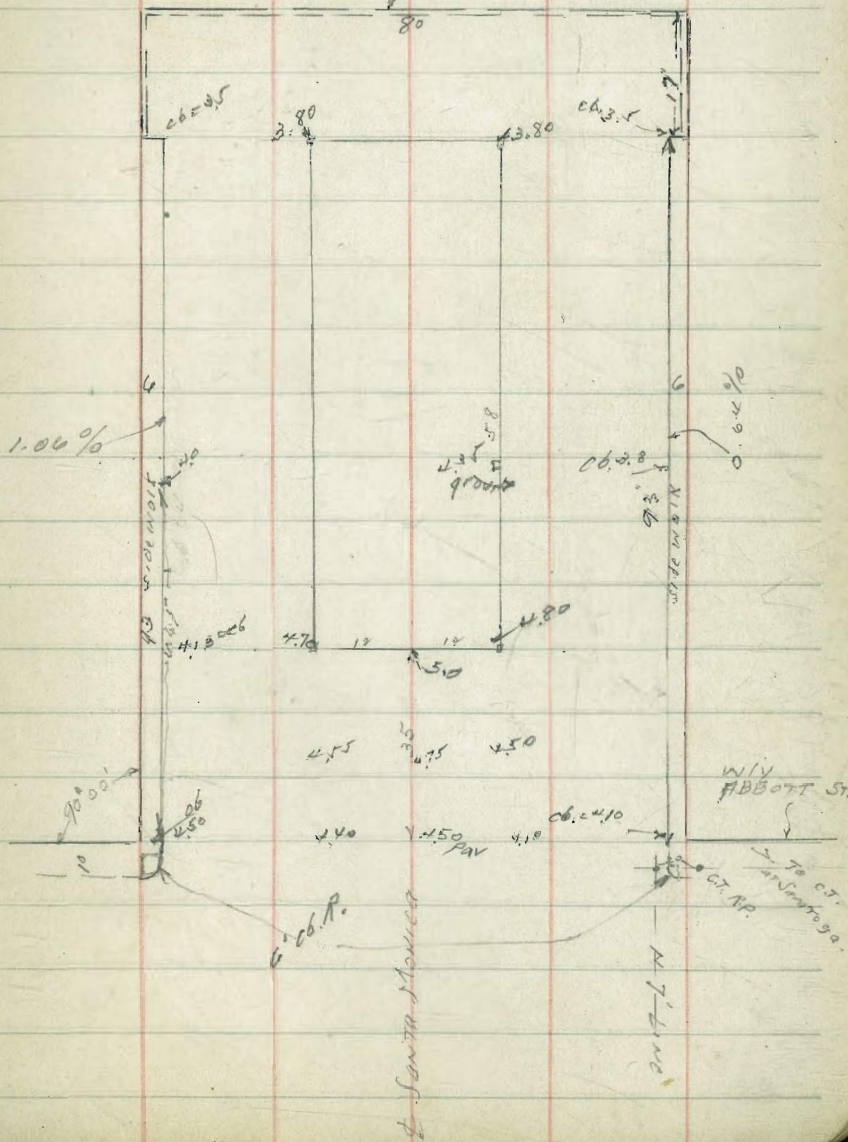 80
cb=3.5
3.80
3.80
cb.3.5
17'
6
6
1.06 %
0.64 %
58
4.0
4.35
ground
cb.3.8
93'
93 sidewalk
sidewalk
4.13 cb
4.70
12
12
4.80
5.0
4.55
35
4.75
4.50
90° 00'
W'ly
ABBOTT ST.
cb
4.50
4.40
4.50
Pav
4.10
cb.=4.10
10
C.T. R.P.
To C.T.
at Saratoga
6' cb. R.
℄ SANTA MONICA
N'L'Y Line